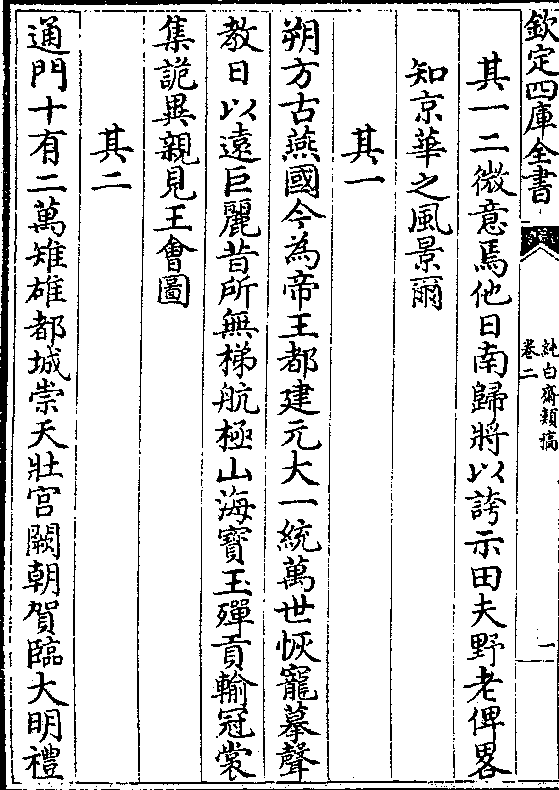 欽定四庫全書
純白齋類稿
卷二
其一二微意焉他日南歸將以誇示田夫野老俾畧
知京華之風景爾
其一
朔方古燕國今為帝王都建元大一統萬世恢寵摹聲
教日以遠巨麗昔所無梯航極山海寶玉殫貢輸冠裳
集詭異親見王會圖
其二
通門十有二萬雉雄都城崇天壯宮闕朝賀臨大明禮